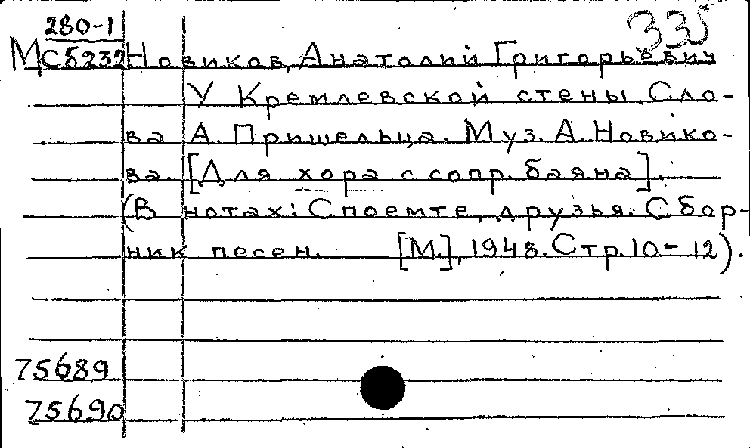 280-1
335
М Сб232 Новиков, Анатолий Григорьевич
У Кремлевской стены. Сло-
ва А. Пришельца. Муз. А. Новико-
ва. [Для хора с сопр. баяна].
(В нотах: Споемте, друзья. Сбор-
ник песен. [М.], 1948. Стр. 10-12).
75689
75690